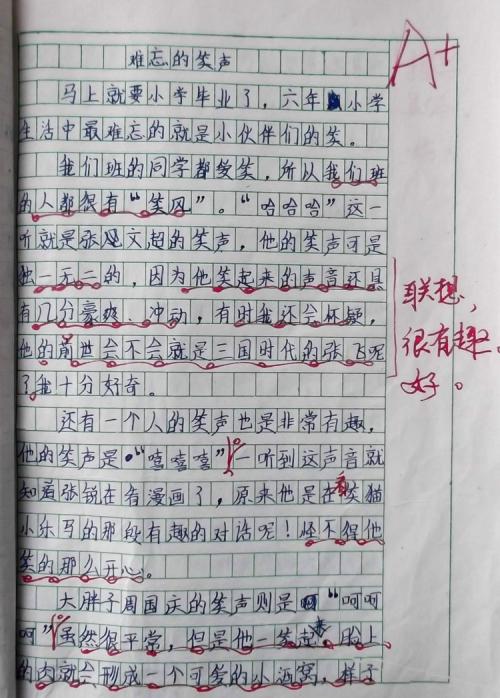 难忘的笑声
A+
马上就要小学毕业了，六年小学
生活中最难忘的就是小伙伴们的笑。
我们班的同学都爱笑，所以我们班
的人都很有“笑风”。“哈哈哈”这一
听就是张文超的笑声，他的笑声可是
独一无二的，因为他笑起来的声音还具
有几分豪爽、冲动，有时我还会怀疑，
他的前世会不会就是三国时代的张飞呢
？我十分好奇。
联想，
很有趣。
好。
还有一个人的笑声也是非常有趣，
他的笑声是“嘻嘻嘻”一听到这声音就
知道张锐在看漫画了，原来他是在看笑猫
小乐马的那段有趣的对话呢！怪不得他
笑的那么开心。
大胖子周国庆的笑声则是“呵呵
呵”虽然很平常，但是他一笑起来，脸上
的肉就会形成一个可爱的小酒窝，样子